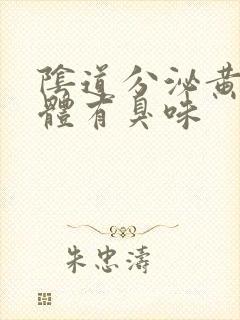 陰道分泌黃
體有臭味
朱忠濤